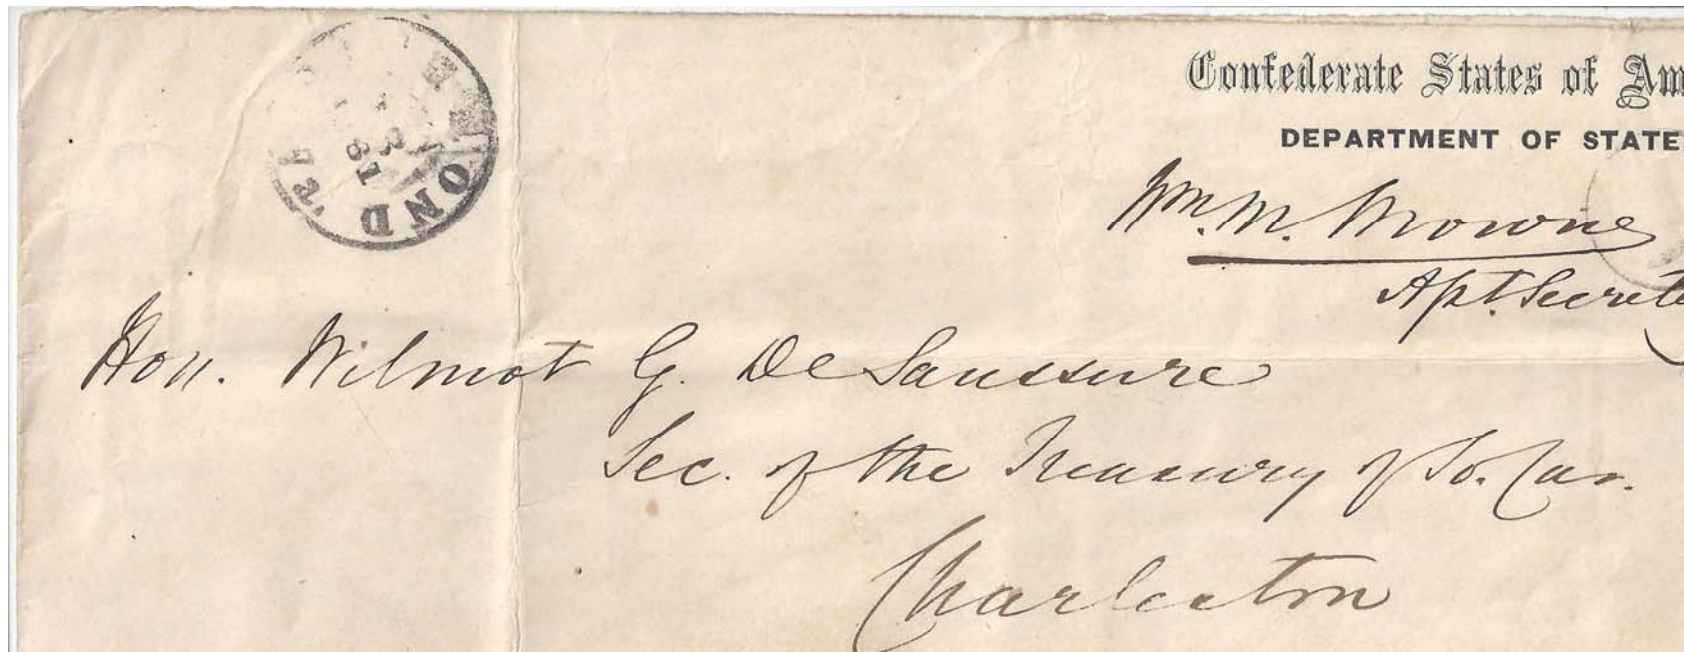 Confederate States of Am
DEPARTMENT OF STATE
Wm. M. Browne
Asst. Secreta
Hon. Wilmot G. De Saussure
Sec. of the Treasury of So. Car.
Charleston
OND